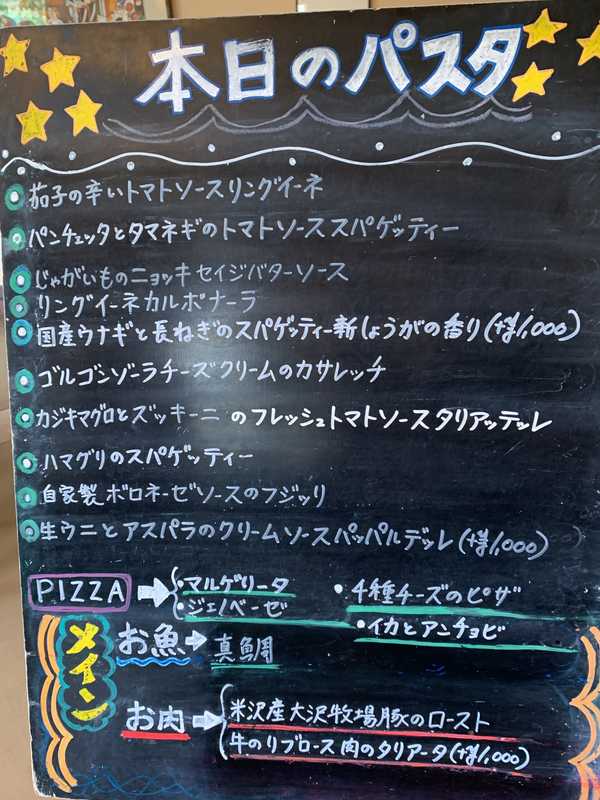 本日のパスタ
茄子の辛いトマトソースリングイーネ
パンチェッタとタマネギのトマトソーススパゲッティー
じゃがいものニョッキセイジバターソース
リングイーネカルボナーラ
国産ウナギと長ねぎのスパゲッティー新しょうがの香り(+¥1,000)
ゴルゴンゾーラチーズクリームのカサレッチ
カジキマグロとズッキーニのフレッシュトマトソースタリアッテッレ
ハマグリのスパゲッティー
自家製ボロネーゼソースのフジッリ
生ウニとアスパラのクリームソースパッパルデッレ(+¥1,000)
PIZZA → ・マルゲリータ ・4種チーズのピザ
・ジェノベーゼ ・イカとアンチョビ
メイン
お魚→真鯛
お肉→米沢産大沢牧場豚のロースト
牛のリブロース肉のタリアータ(+¥1,000)